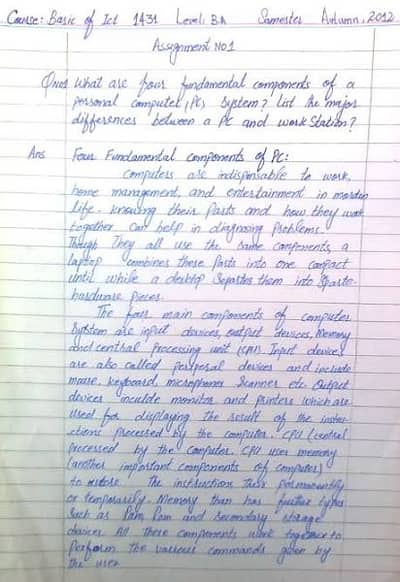 Course: Basic of Ict 1431 Level: B.A Samester Autumn, 2012
Assignment No 1
Qno1 What are four fundamental components of a
personal computer (PC) System? List the major
differences between a PC and work Station?
Ans Four Fundamental components of PC:
Computers are indispensable to work,
home management, and entertainment in mordern
life. knowing their parts and how they work
together can help in diagnosing Problems.
Though They all use the same components, a
laptop combines these Parts into one compact
until while a desktop Separtes them into
hardware pieces.
The four main components of computer
System are input davices, output devices, Memory
and central Processing unit (CPU). Input devices
are also called devices and include
mouse, Keyboard, microphones Scanner etc. Output
devices include monitor and printers which are
used for displaying the result of the instru-
ctions processed by the computer. CPU (central
processed by the computer. CPU uses memory
(another important components of computer)
to restore the instructions their permanently
or temporarily. Memory than has further types
such as Ram, Rom and secondary storage
devices. All these components work together to
perform the various commands given by
the user